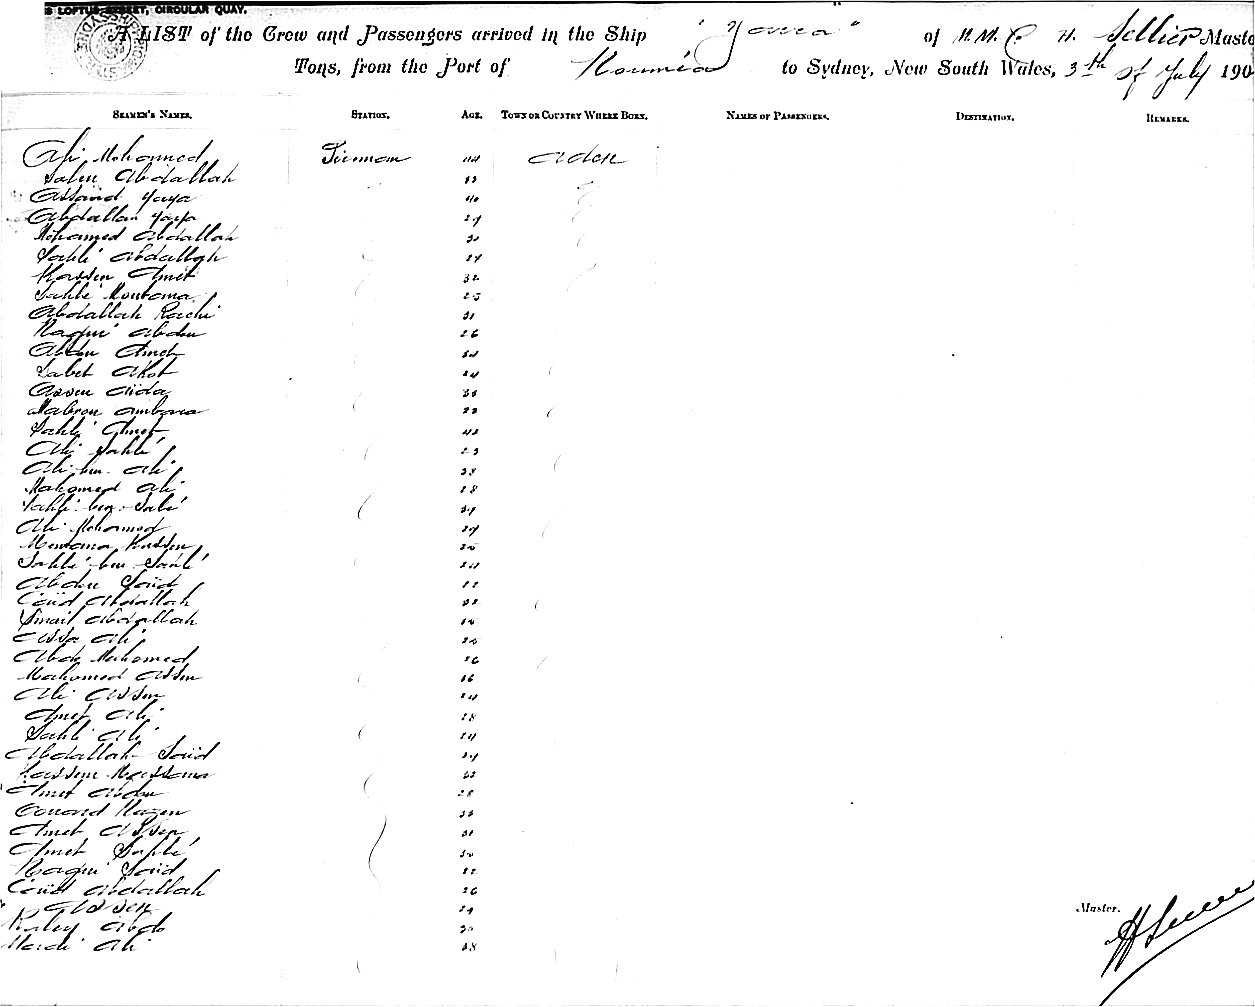 LOFTUS STREET, CIRCULAR QUAY.
A LIST of the Crew and Passengers arrived in the Ship "Yarra" of M. M. C H. Sellier Master
Tons, from the Port of Nouméa to Sydney, New South Wales, 3th of July 190
SEAMEN'S NAMES. STATION. AGE. TOWN OR COUNTRY WHERE BORN. NAMES OF PASSENGERS. DESTINATION. REMARKS.
Ali Mohamed Fireman 44 Aden
Salem Abdallah
Assand Yaya 40
Abdallah Yaya 29
Mohamed Abdallah 30
Sahlé Abdallah 24
Hassen Amet 32
Sahlé Mouhama 25
Abdallah Rachi 31
Nagui Abdou 26
Abdou Amet
Sabet Akot 24
Assen Aida
Mabrou
Sahlé Amet 42
Ali Sahlé 23
Ali ben Ali 38
Mahomed Ali 28
Sahlé ben Salé
Ali Mohamed 29
Hassen
Sahlé ben Sahlé 24
Abdou Saïd 22
Caïd Abdallah 32
Smaïl Abdallah
Aïssa Ali
Abde Mahomed 26
Mahomed Assen 36
Ali Assen 24
Amet Ali 28
Sahlé Ali 24
Abdallah Saïd
Hassem
Amet Abdou 28
Nagen
Amet Assen 31
Amet Sahlé 30
Nagui Saïd 22
Caïd Abdallah 26
Assen 29
Abdo 30
Ali 38
Master.